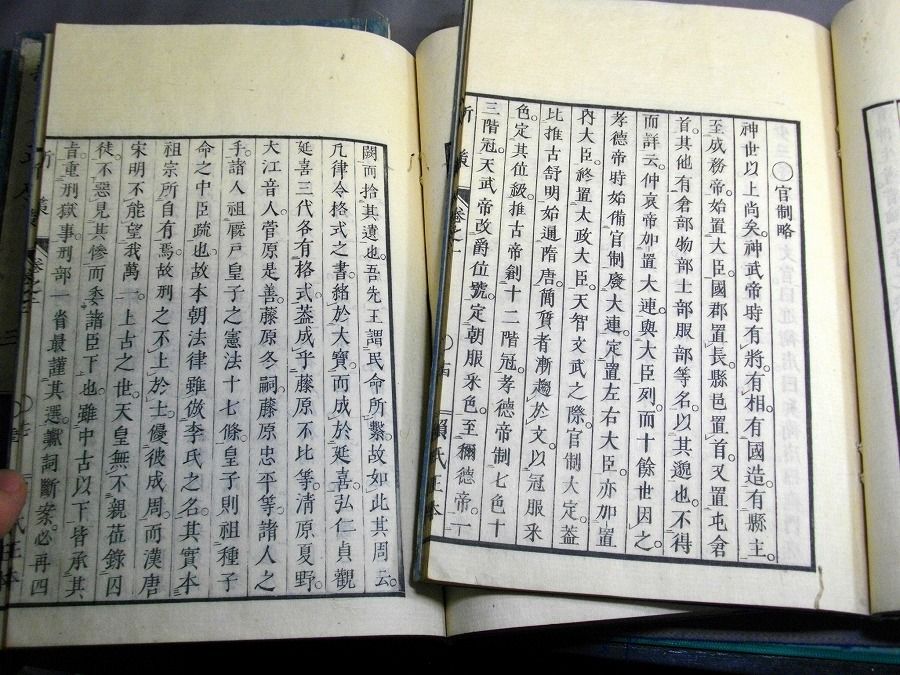 官制略
神世以上尚矣。神武帝時有將。有相。有國造。有縣主。
至成務帝。始置大臣。國郡置長。縣邑置首。又置屯倉
首。其他有倉部物部土部服部等名。以其邈也。不得
而詳云。仲哀帝加置大連。與大臣列。而十餘世因之。
孝德帝時。始備官制。廢大連。定置左右大臣。亦加置
內大臣。終置太政大臣。天智文武之際。官制大定。蓋
比推古舒明始通隋唐。簡質者漸趨於文。以冠服釆
色。定其位級。推古帝創十二階冠。孝德帝制七色十
三階冠。天武帝改爵位號。定朝服釆色。至稱德帝。一
新
卷之
賴氏正本
闕而拾其遺也。吾先王謂民命所繫。故如此其周云。
凡律令格式之書。䋎於大寶。而成於延喜。弘仁貞觀
延喜三代各有格式。蓋成乎藤原不比等。淸原夏野。
大江音人。菅原是善。藤原冬嗣。藤原忠平等諸人之
手。諸人祖厩戶皇子之憲法十七條。皇子則祖種子
命之中臣疏也。故本朝法律雖倣李氏之名。其實本
祖宗所自有焉。故刑之不上於士。優彼成周。而漢唐
宋明不能望我萬一。上古之世。天皇無不親莅錄囚
徒。不忍見其慘而委諸臣下也。雖中古以下皆承其
旨。重刑獄事。刑部一省最謹其選。讞詞斷案。必再四
新
卷之
氏正本